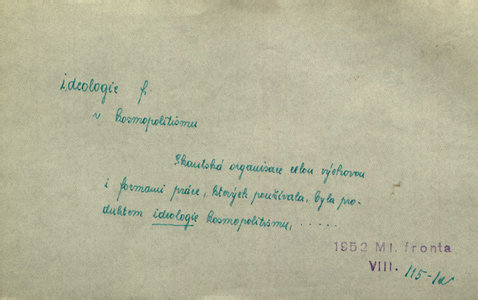 ideologie f.
v kosmopolitismu
Skautská organisace celou výchovou
i formami práce, kterých používala, byla pro-
duktem ideologie kosmopolitismu, . . . . .
1952 Ml. fronta
VIII. 115-1a